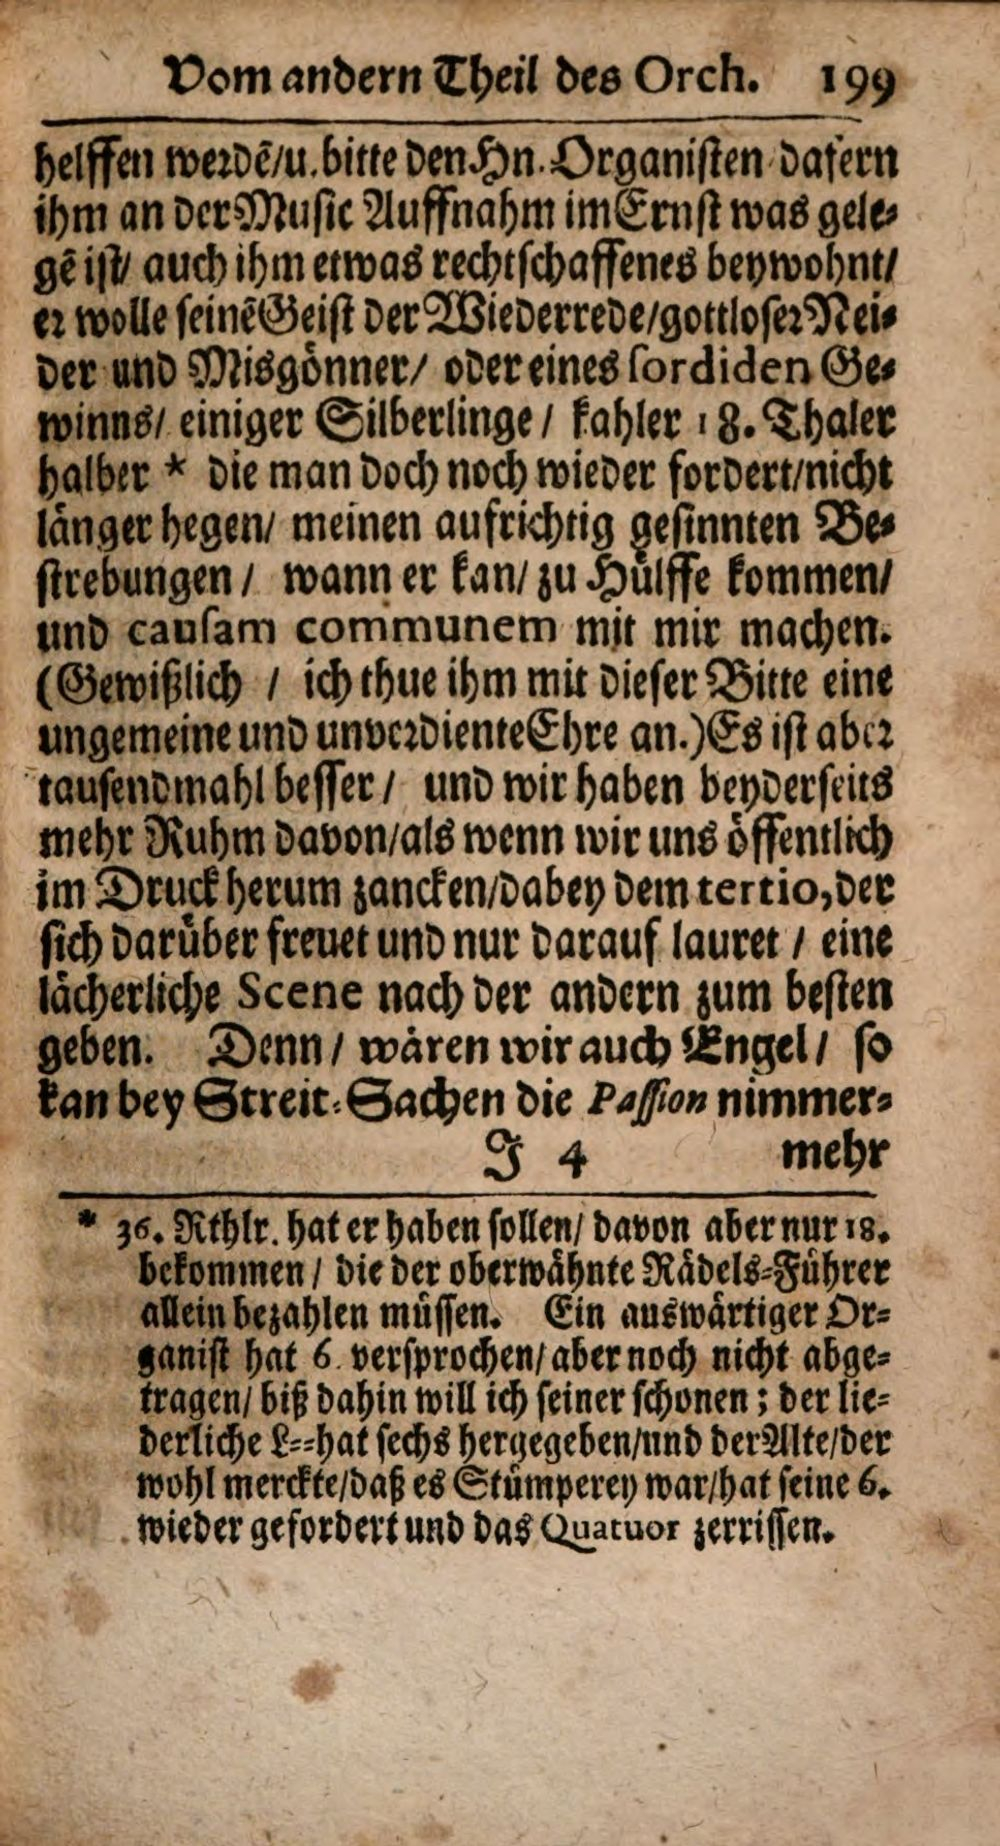 Vom andern Theil des Orch. 199
helffen werdē/u. bitte den Hn. Organisten dafern
ihm an der Music Auffnahm im Ernst was gele-
gē ist/ auch ihm etwas rechtschaffenes beywohnt/
er wolle seinē Geist der Wiederrede/gottloser Nei-
der und Misgönner/ oder eines sordiden Ge-
winns/ einiger Silberlinge / kahler 18. Thaler
halber * die man doch noch wieder fordert/nicht
länger hegen/ meinen aufrichtig gesinnten Be-
strebungen / wann er kan/ zu Hülffe kommen/
und causam communem mit mir machen.
(Gewißlich / ich thue ihm mit dieser Bitte eine
ungemeine und unverdiente Ehre an.) Es ist aber
tausendmahl besser / und wir haben beyderseits
mehr Ruhm davon/als wenn wir uns öffentlich
im Druck herum zancken/dabey dem tertio, der
sich darüber freuet und nur darauf lauret / eine
lächerliche Scene nach der andern zum besten
geben. Denn / wären wir auch Engel / so
kan bey Streit-Sachen die Passion nimmer-
J 4 mehr
* 36. Rthlr. hat er haben sollen/ davon aber nur 18.
bekommen / die der oberwähnte Rädels-Führer
allein bezahlen müssen. Ein auswärtiger Or-
ganist hat 6. versprochen/ aber noch nicht abge-
tragen/ biß dahin will ich seiner schonen; der lie-
derliche L--hat sechs hergegeben/und der Alte/der
wohl merckte/daß es Stümperey war/hat seine 6.
wieder gefordert und das Quatuor zerrissen.